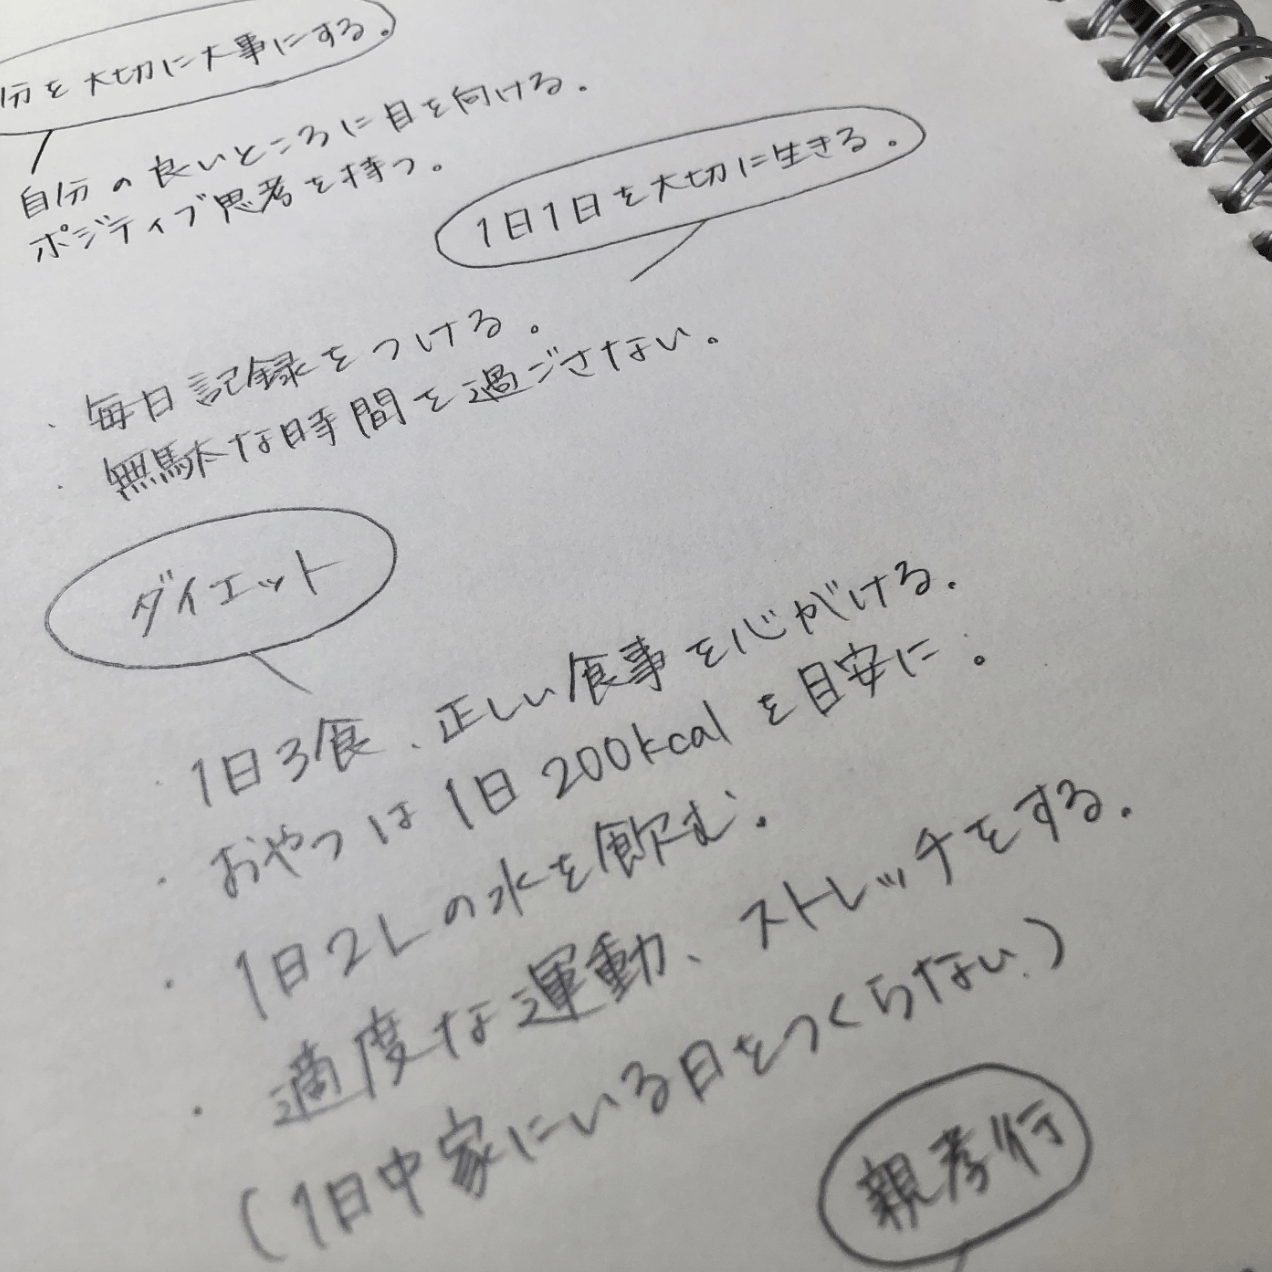 分を大切に大事にする。
自分の良いところに目を向ける。
ポジティブ思考を持つ。
1日1日を大切に生きる。
・毎日記録をつける。
・無駄な時間を過ごさない。
ダイエット
・1日3食、正しい食事を心がける。
・おやつは1日200kcalを目安に。
・1日2Lの水を飲む。
・適度な運動、ストレッチをする。
(1日中家にいる日をつくらない。)
親孝行